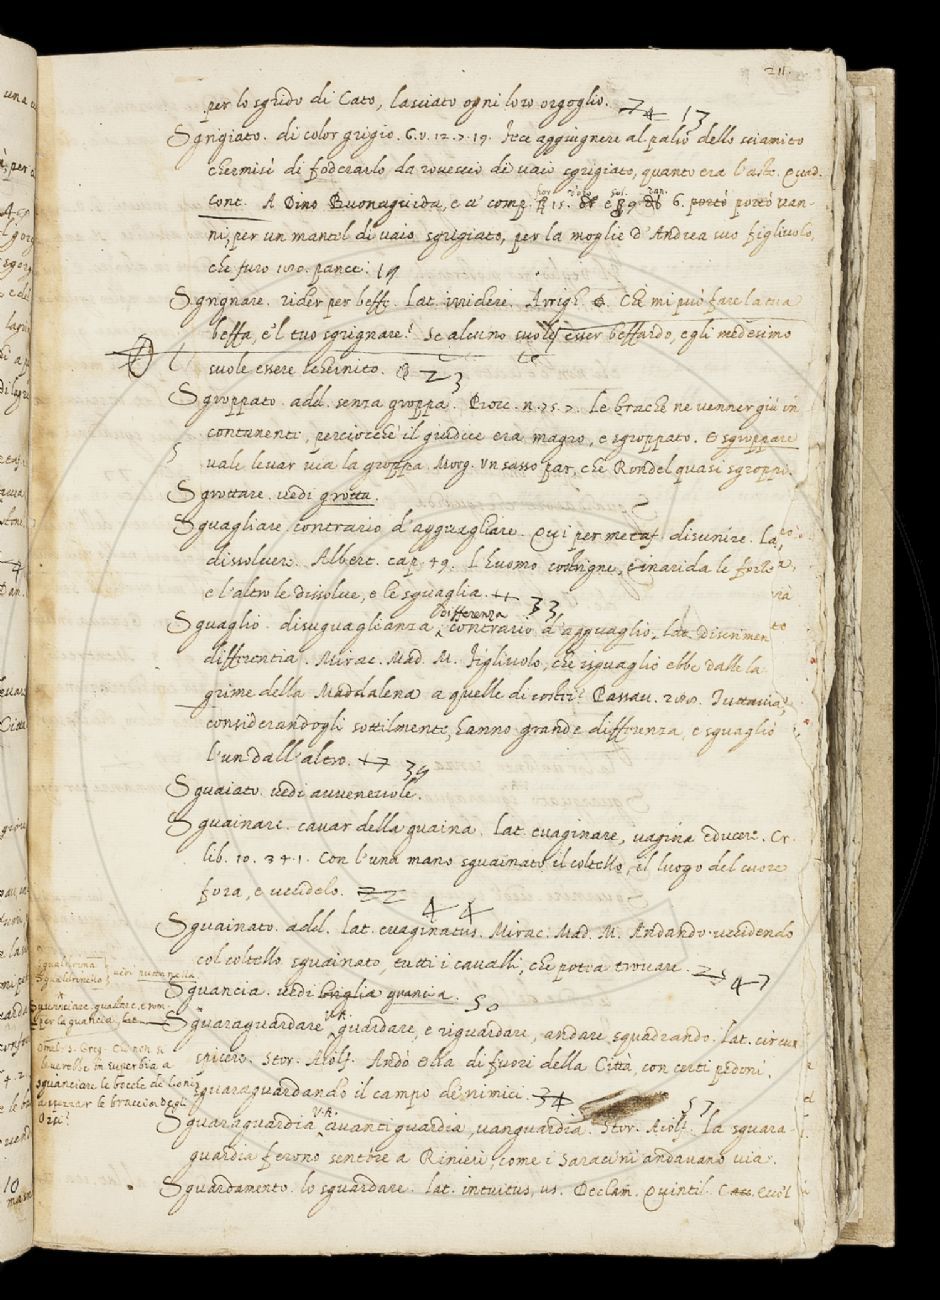 211.
per lo sgrido di Cato, lasciato ogni loro orgoglio. 13
Sgrigiato. di color grigio. G.V. 12. 7. 19. Fece aggiugnere al palio dello sciamito
chermisi di foderarlo da rovescio di vaio sgrigiato, quanto era l'aste. Quad.
Cont. A Dino Buonaguida, e a' comp. 15. e 6. portò van-
ni, per un mantel di vaio sgrigiato, per la moglie d'Andrea suo figliuolo,
che furo pance. 19
Sgrignare. rider per beffe. Lat. irridere. Arrigh. Chè mi può fare la tua
beffa, e'l tuo sgrignare? Se alcuno suole esser beffardo, egli medesimo
suole essere schernito. 23
Sgroppato. add. senza groppa. Bocc. n. 75. 7. Le brache ne venner giù in
contanenti, perciocchè il giudice era magro, e sgroppato. E sgroppare
vale levar via la groppa. Morg. Un sasso par, che Rondel quasi sgroppi.
Sgrottare. vedi grotta.
Sguagliare. contrario d'agguagliare. Qui per metaf. disunire. La
dissolvere. Albert. cap. 49. L'huomo costrigne, e inarida le forze
e l'altro le dissolve, e le sguaglia. 33
Sguaglio. disuguaglianza, differenza contrario d'agguaglio, lat. discrimen
differentia. Mirac. Mad. M. Figliuolo, che isguaglio ebbe dalle la
grime della Maddalena a quelle di costri? Passav. Tuttavia,
considerandogli sottilmente, hanno grande differenza, e sguaglio
l'un dall'altro. 39
Sguaiato. vedi avvenevole.
Sguainare. cavar della guaina. Lat. evaginare, vagina educere. Cr.
lib. 10. 34. 1. Con l'una mano sguainato il coltello, il luogo del cuore
fora, e uccidelo. 44
Sguainato. add. lat. evaginatus. Mirac. Mad. M. Andando uccidendo
col coltello sguainato, tutti i cavalli, che potea trovare. 47
Sguancia. vedi briglia guancia. 50
Sguaraguardare guardare, e riguardare, andare squadrando. Lat. circun
spicere. Stor. Aiolf. Andò Elia di fuori della Città, con certi pedoni,
sguaraguardando il campo de' nimici.
Sguaraguardia avanti guardia, vanguardia. Stor. Aiolf. La sguara- 57
guardia ferono sentore a Rinieri, come i Saracini andavano via.
Sguardamento. lo sguardare. Lat. intuitus, us. Declam. Quintil. C.
Sgualdrina
Sgualdrinella vedi puttanella
per la guancia, lat.
Omel. S. Greg. Chi non si
in superbia a
sguanciare le bocche de' lioni
a le braccia degli
Orsi?